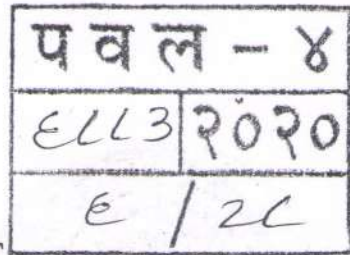 पवल - ४
६८८३ २०२०
६ / २८